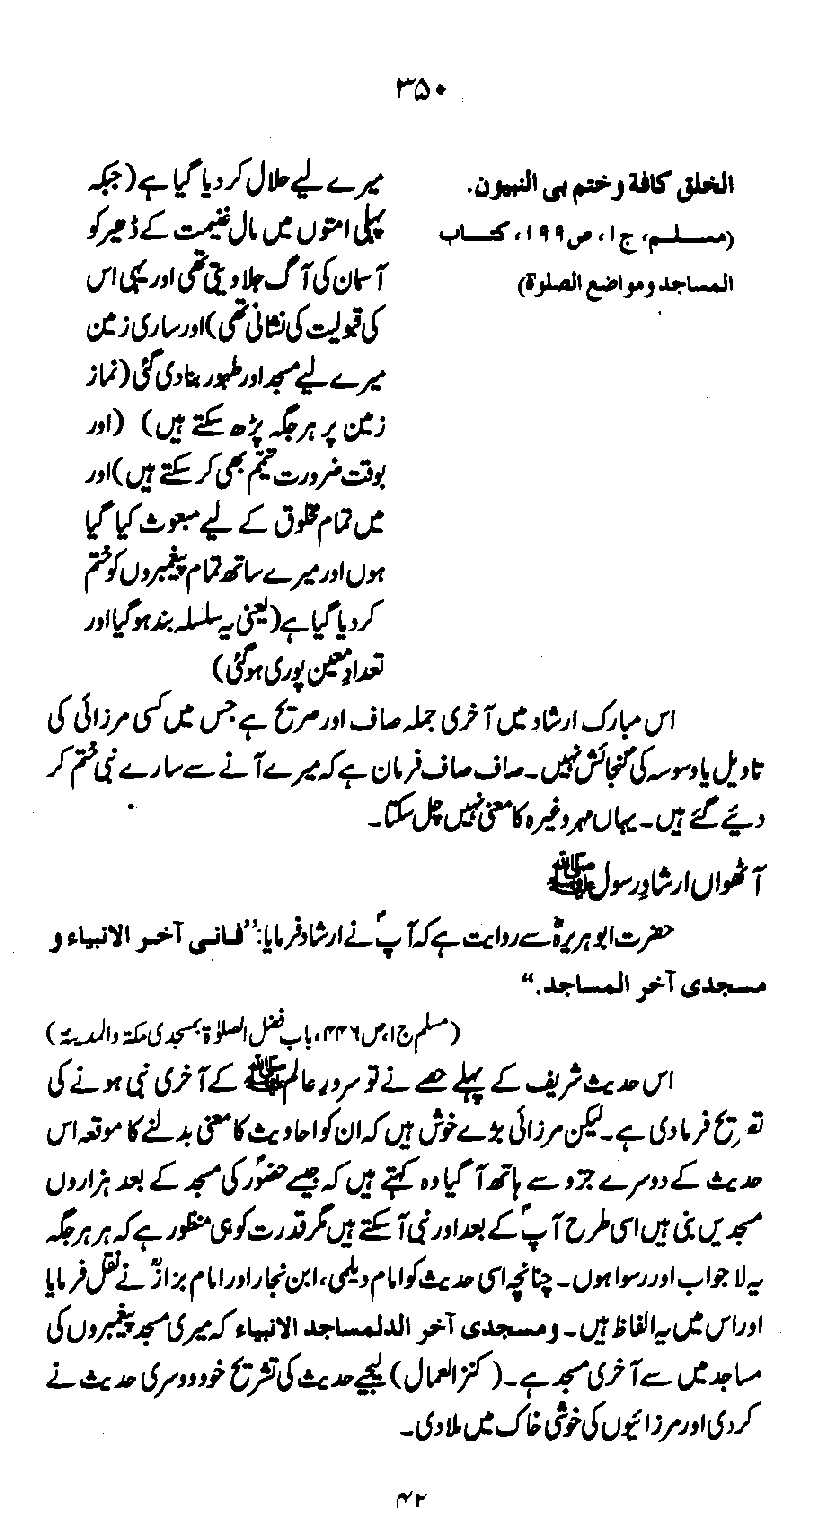 ۳۵۰
الخلق کافة وختم بی النبیون.
(مسلم، ج ا، ص ۱۹۹، کتاب
المساجد ومواضع الصلوة)
میرے لیے حلال کر دیا گیا ہے (جبکہ
پہلی امتوں میں مال غنیمت کے ڈھیر کو
آسمان کی آگ جلا دیتی تھی اور یہی اس
کی قبولیت کی نشانی تھی) اور ساری زمین
میرے لیے مسجد اور طہور بنا دی گئی (نماز
زمین پر ہر جگہ پڑھ سکتے ہیں) (اور
بوقت ضرورت تیمم بھی کر سکتے ہیں) اور
میں تمام مخلوق کے لیے مبعوث کیا گیا
ہوں اور میرے ساتھ تمام پیغمبروں کو ختم
کر دیا گیا ہے (یعنی یہ سلسلہ بند ہو گیا اور
تعداد معین پوری ہو گئی)
اس مبارک ارشاد میں آخری جملہ صاف اور صریح ہے جس میں کسی مرزائی کی
تاویل یا وسوسہ کی گنجائش نہیں۔ صاف صاف فرمان ہے کہ میرے آنے سے سارے نبی ختم کر
دیئے گئے ہیں۔ یہاں مہر وغیرہ کا معنی نہیں چل سکتا۔
آٹھواں ارشادِ رسول ﷺ
حضرت ابوہریرہؓ سے روایت ہے کہ آپؐ نے ارشاد فرمایا: ”فانی آخر الانبیاء و
مسجدی آخر المساجد.“
(مسلم ج ا، ص ۴۴۶، باب فضل الصلوٰة بمسجدی مکة والمدینة)
اس حدیث شریف کے پہلے حصے نے تو سرور عالم ﷺ کے آخری نبی ہونے کی
تصریح فرما دی ہے۔ لیکن مرزائی بڑے خوش ہیں کہ ان کو احادیث کا معنی بدلنے کا موقعہ اس
حدیث کے دوسرے جزو سے ہاتھ آ گیا وہ کہتے ہیں کہ جیسے حضورؐ کی مسجد کے بعد ہزاروں
مسجدیں بنی ہیں اسی طرح آپؐ کے بعد اور نبی آ سکتے ہیں مگر قدرت کو یہی منظور ہے کہ ہر ہر جگہ
یہ لا جواب اور رسوا ہوں۔ چنانچہ اسی حدیث کو امام دیلمی، ابن نجار اور امام بزارؒ نے نقل فرمایا
اور اس میں یہ الفاظ ہیں۔ ومسجدی آخر الدلمساجد الانبیاء کہ میری مسجد پیغمبروں کی
مساجد میں سے آخری مسجد ہے۔ (کنز العمال) لیجیے حدیث کی تشریح خود دوسری حدیث نے
کر دی اور مرزائیوں کی خوشی خاک میں ملا دی۔
۴۲